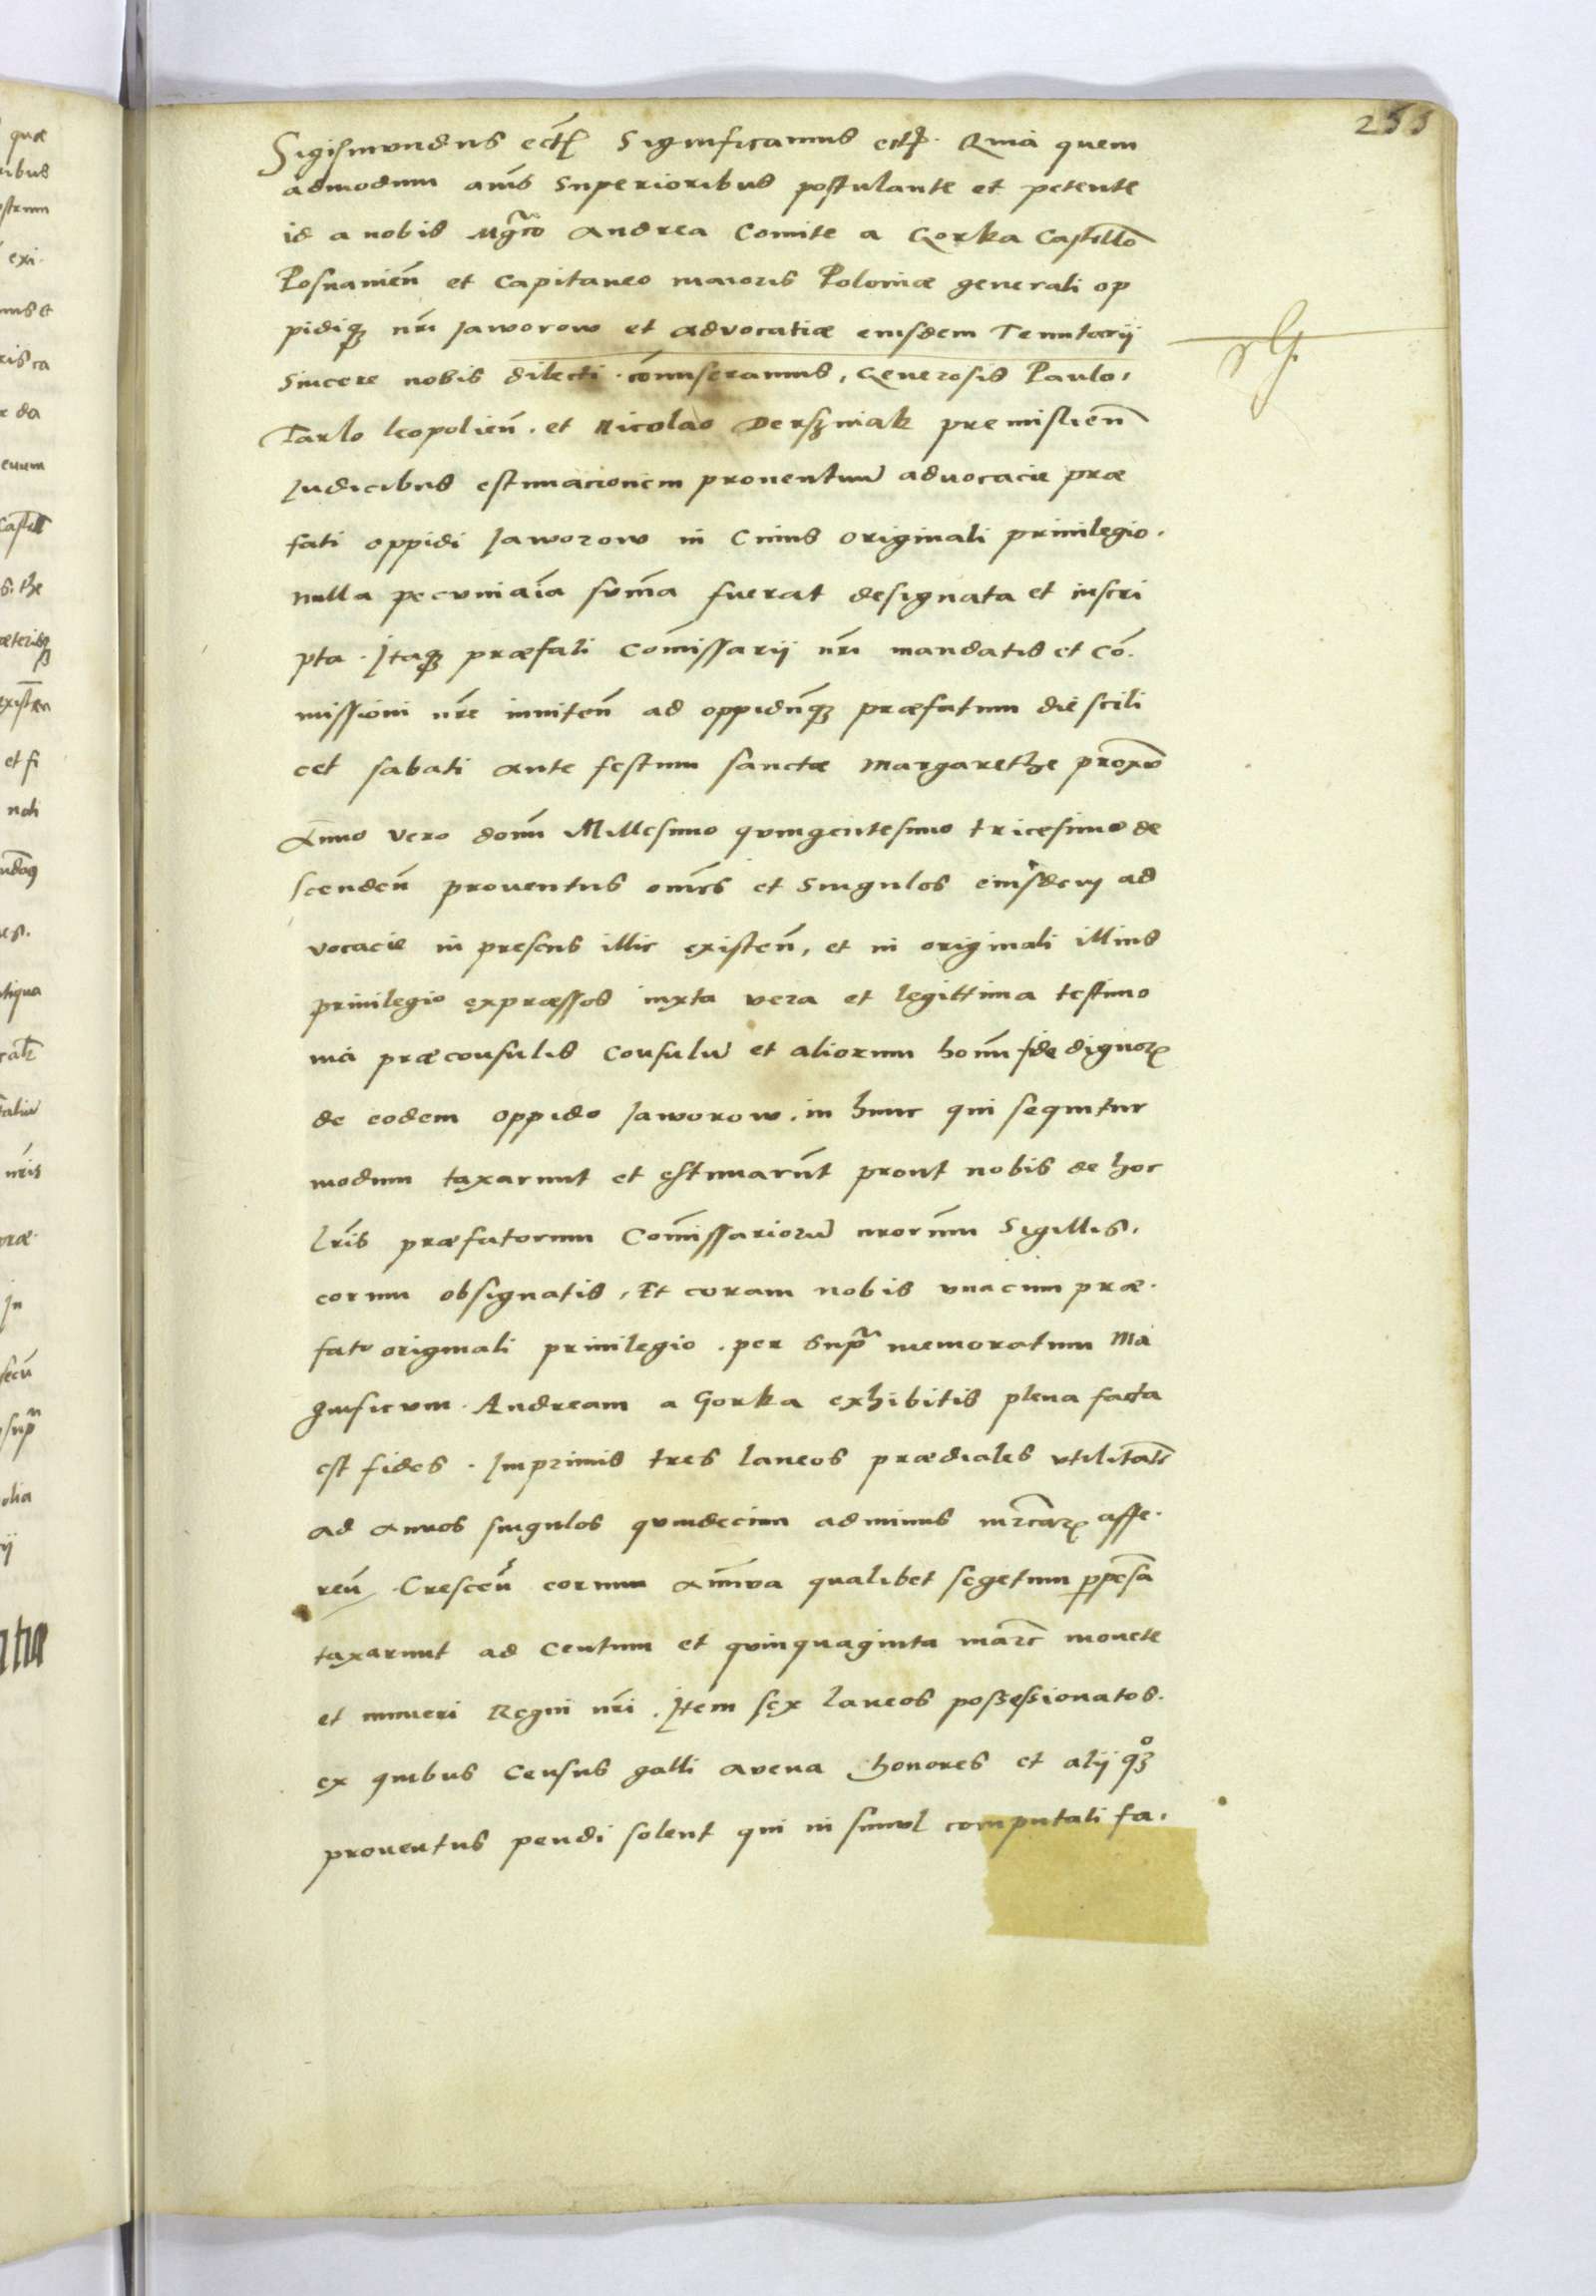 255
Sigismundus ect. Significamus ectp. Quia quem
admodum anis superioribus postulante et petente
id a nobis Mgco Andrea Comite a Gorka Castello
Posnanien et Capitaneo maioris Poloniæ generali op
pidiq nri Jaworow et advocatiæ eiusdem Tenutarij
sincere nobis dilecti comiseramus, Generosis Paulo,
Tarlo leopolien. et Nicolao Derszniak premislien
Judicibus estimacionem prouentuum advocacie præ
fati oppidi Jaworow in Cuius originali priuilegio.
nulla pecuniaia suma fuerat designata et inscri
pta. Itaq præfati Comissarij nri mandatis et Co.
missioni nre inniten ad oppidumq præfatum die scili
cet sabati ante festum sanctæ Margarethe proxio
Anno vero domi Millesimo quingentesimo tricesimo de
scenden prouentus omes et singulos eiusdem ad
vocacie in presens illic existen, et in originali illius
priuilegio expræssos iuxta vera et legittima testimo
nia præconsulis Consulu et aliorum homi fide dignor
de eodem oppido Jaworow. in hunc qui sequitur
modum taxarunt et estimarunt prout nobis de hoc
lris præfatorum Comissarioru nrorum Sigillis.
eorum obsignatis, Et coram nobis vnacum præ.
fato originali priuilegio. per supra memoratum Ma
gnificum. Andream a Gorka exhibitis plena facta
est fides. Imprimis tres laneos prædiales vtilitate
ad annos singulos quindecim adminus mrcar affe.
ren. Crescen eorum annua qualibet segetum ppesa
taxarunt ad Centum et quinquaginta marc monete
et numeri Regni nri. Item sex laneos possessionatos.
ex quibus Census galli avena honores et alij qoz
prouentus pendi solent qui in simul computati fa.